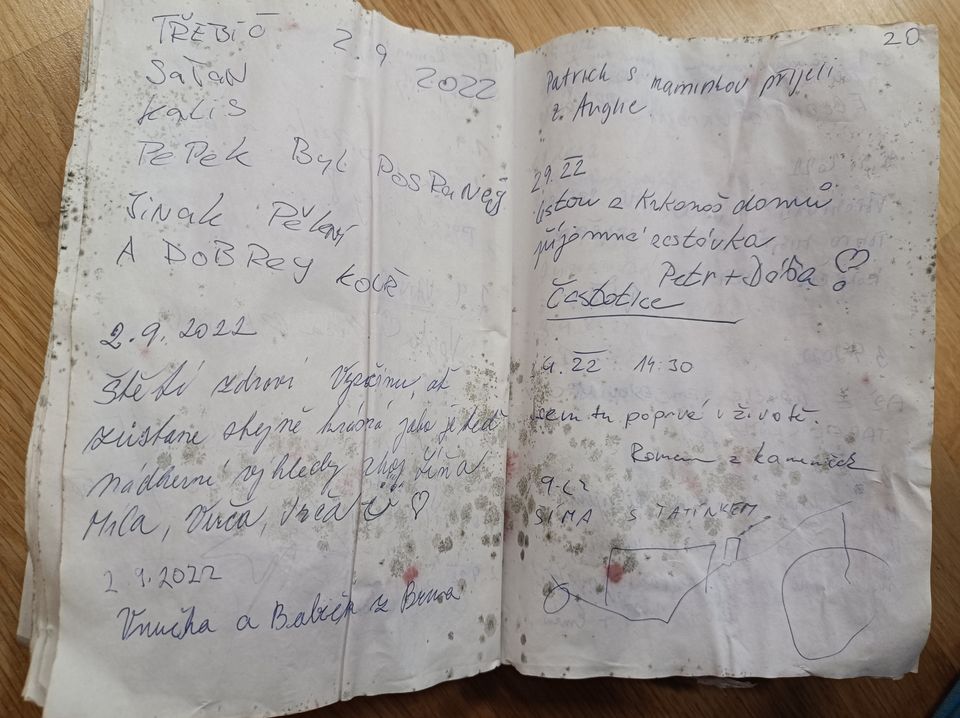 TŘEBIČ 2 9 2022
SATAN
KALIS
PEPEK BYL POSRANEJ
JINAK PĚKNÝ
A DOBREY KOUŘ
2.9.2022
Štěstí zdraví Vysočinu, ať
zůstane stejně krásná jako je teď
nádherné výhledy
Míla, Verča,
2 9.2022
Vnučka a Babička z Brna
20
Patrick s maminkou přijeli
z Anglie
2.9.22
z Krkonoš domů
příjemná zastávka
Petr + Dáša
Častotice
9.22 14:30
sem tu poprvé v životě.
Roman z kameniček
9.22
SIMA S TATÍNKEM